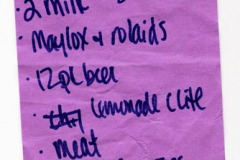 · 2 milk
· Maylox & rolaids
· 12pk beer
· Lemonade C Lite
· meat